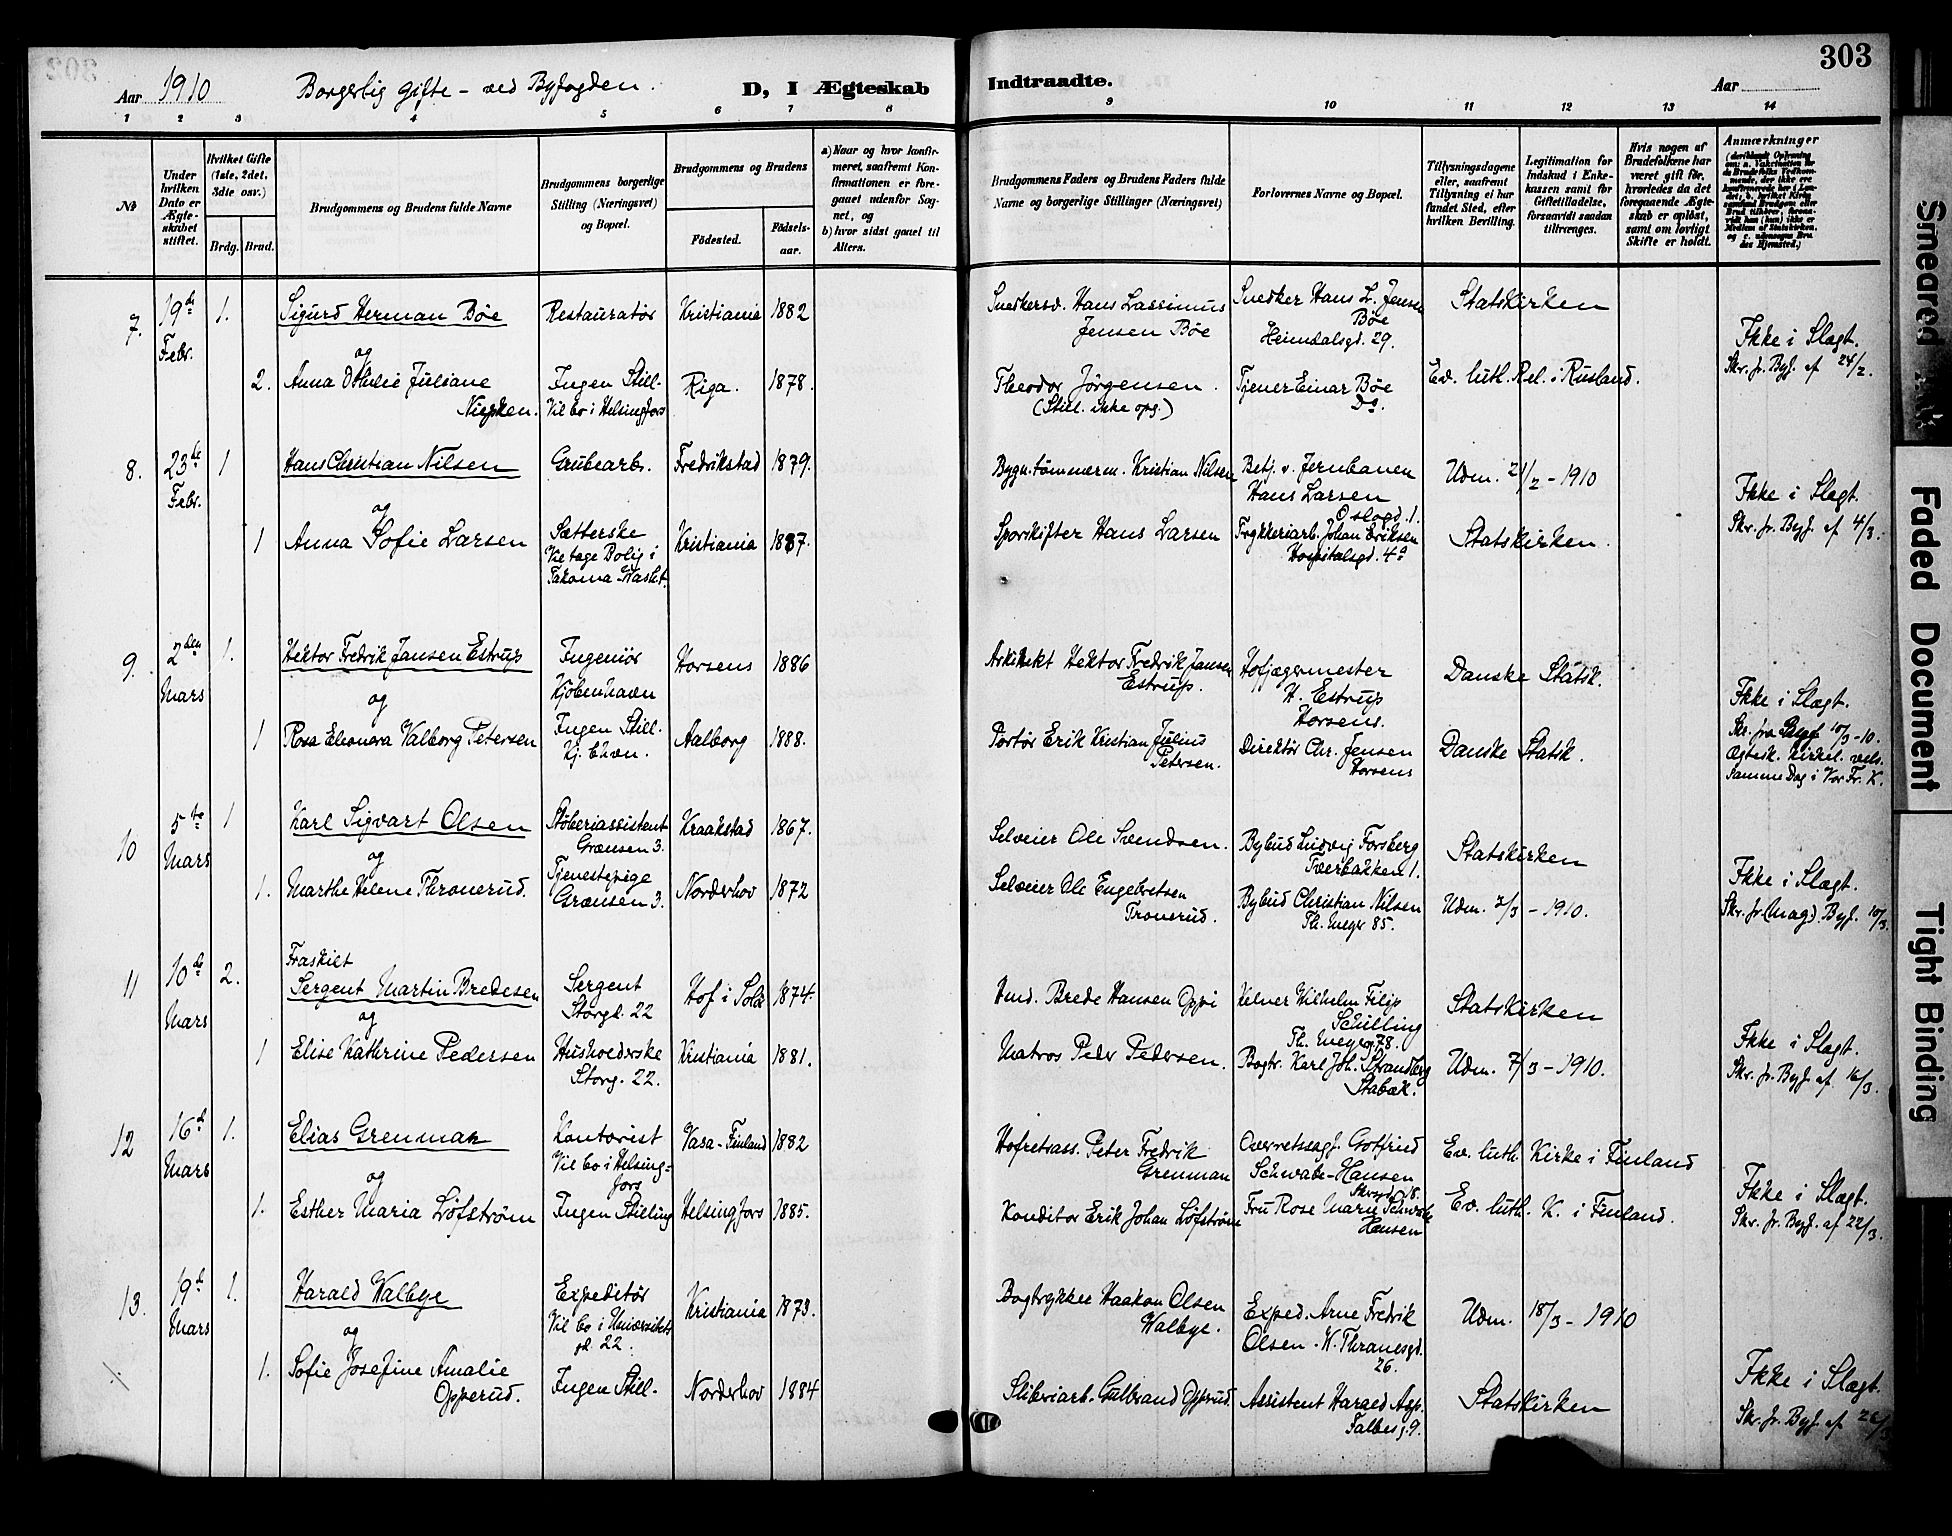 303
Aar 1910 Borgerlig gifte - ved Byfogden. D, I Ægteskab Indtraadte. Aar
1 2 3 4 5 6 7 8 9 10 11 12 13 14
№
Under hvilken Dato er Ægteskabet stiftet.
Hvilket Gifte (1ste, 2det, 3die osv.)
Brdg. Brud.
Brudgommens og Brudens fulde Navne
Brudgommens borgerlige Stilling (Næringsvei) og Bopæl.
Brudgommens og Brudens
Födested. Födselsaar.
a) Naar og hvor konfirmeret, saafremt Konfirmationen er foregaaet udenfor Sognet, og
b) hvor sidst gaaet til Alters.
Brudgommens Faders og Brudens Faders fulde Navne og borgerlige Stillinger (Næringsvei)
Forlovernes Navne og Bopæl.
Tillysningsdagene eller, saafremt Tillysning ei har fundet Sted, efter hvilken Bevilling.
Legitimation for Indskud i Enkekassen samt for Giftetilladelse, forsaavidt saadan tiltrænges.
Hvis nogen af Brudefolkene har været gift før, hvorledes da det foregaaende Ægteskab er opløst, samt om lovligt Skifte er holdt.
Anmærkninger
7. 19de Febr. 1. Sigurd Herman Böe Restauratör Kristiania 1882
Snedkersv. Hans Lassinius Jensen Böe
Snedker Hans L. Jensen Böe Heimdalsgd. 29.
Statskirken
og
2. Anna Juliane Ingen Still. Vil bo i Helsingfors Riga. 1878.
Theodor Jörgensen. (Still. ikke opg.)
Tjener Einar Böe Do.
Ev. luth. Rel. i Rusland.
Ikke i Slægt.
Skr. fr. Byf. af 24/2.
8. 23de Febr. 1 Hans Christian Nilsen Grubearb. Fredrikstad 1879.
Bygn.tömmerm. Kristian Nilsen
Betj. v. Jernbanen Hans Larsen Oslogd. 1.
Udm. 21/2 - 1910
og
1 Anna Sofie Larsen Sætterske Vil tage Bolig i Takoma Washt. Kristiania 1887.
Sporskifter Hans Larsen
Trykkeriarb. Johan Eriksen Hospitalsgd. 4a
Statskirken.
Ikke i Slægt.
Skr. fr. Byf. af 4/3.
9. 2den Mars 1. Hektor Fredrik Jansen Estrup Ingeniör Kjöbenhavn Horsens 1886
Arkitekt Hektor Fredrik Jansen Estrup.
Hofjægermester H. Estrup Horsens.
Danske Statsk.
og
1 Rosa Eleonora Valborg Petersen Ingen Still. Kj.bhavn. Aalborg 1888.
Portör Erik Kristian Julius Petersen.
Direktör Chr. Jensen Horsens
Danske Statsk.
Ikke i Slægt.
Skr. fra Byf. 10/3-10.
Ægtesk. kirkel. vels.
samme Dag i Vor Fr. K.
10 5te Mars 1 Karl Sigvart Olsen Stöberiassistent Grænsen 3. Kraakstad 1867.
Selveier Ole Svendsen.
Bybud Ludvig Forsberg Tverbakken 1.
Statskirken
og
1. Marthe Helene Thronerud. Tjenestepige Grænsen 3. Norderhov 1872
Selveier Ole Engebretsen Tronerud.
Bybud Christian Nilsen Th. Meyer 85.
Udm. 2/3 - 1910.
Ikke i Slægt.
Skr. fr. (Mag). Byf. 10/3
11 10de Mars 2. Fraskilt
Sergent Martin Bredesen Sergent Storgd. 22 Hof i Solör 1874.
Hmd. Brede Hansen Oppi
Kelner Wilhelm Filip Schilling Th. Meyer 78.
Statskirken
og
1 Elise Kathrine Pedersen Husholderske Storg. 22. Kristiania 1881.
Matros Peder Pedersen.
Bogtr. Karl Joh. Strandberg Stabæk.
Udm. 7/3 - 1910.
Ikke i Slægt.
Skr. fr. Byf. af 16/3.
12 16d Mars 1. Elias Grenman Kontorist Vil bo i Helsing=fors Vasa - Finland 1882
Hofretsass. Peter Fredrik Grenman
Overretssagf. Gotfried Schwabe-Hansen
Ev. luth. Kirke i Finland
og
1. Esther Maria Löfström Ingen Stilling Helsingfors 1885.
Konditor Erik Johan Löfström
Fru Rose Marie Schwabe Hansen
Ev. luth. K. i Finland.
Ikke i Slægt.
Skr. fr. Byf. af 22/3.
13. 19d Mars 1. Harald Walbye Expeditör Vil bo i Universitets gd. 22. Kristiania 1873.
Bogtrykker Haakon Olsen Walbye.
Exped. Arne Fredrik Olsen - W. Thranesgd. 26.
Udm. 18/3 - 1910
og
1. Sofie Josefine Amalie Opperud. Ingen Still. Norderhov 1884
Sliberiarb. Gulbrand Opperud.
Assistent Harald Asp. Falbesg. 9.
Statskirken
Ikke i Slægt.
Skr. fr. Byf. af
Smeared Ink
Faded Document
Tight Binding